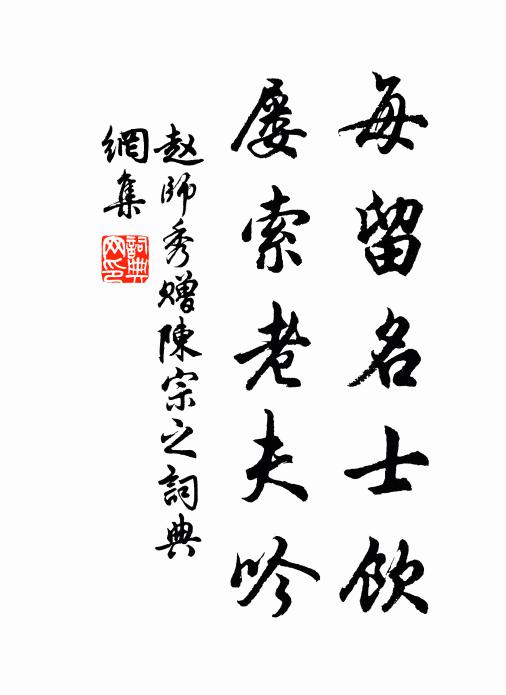 每留名士飲
屡索老夫吟
赵師秀赠陳宗之詞典
網集
詞典
网印